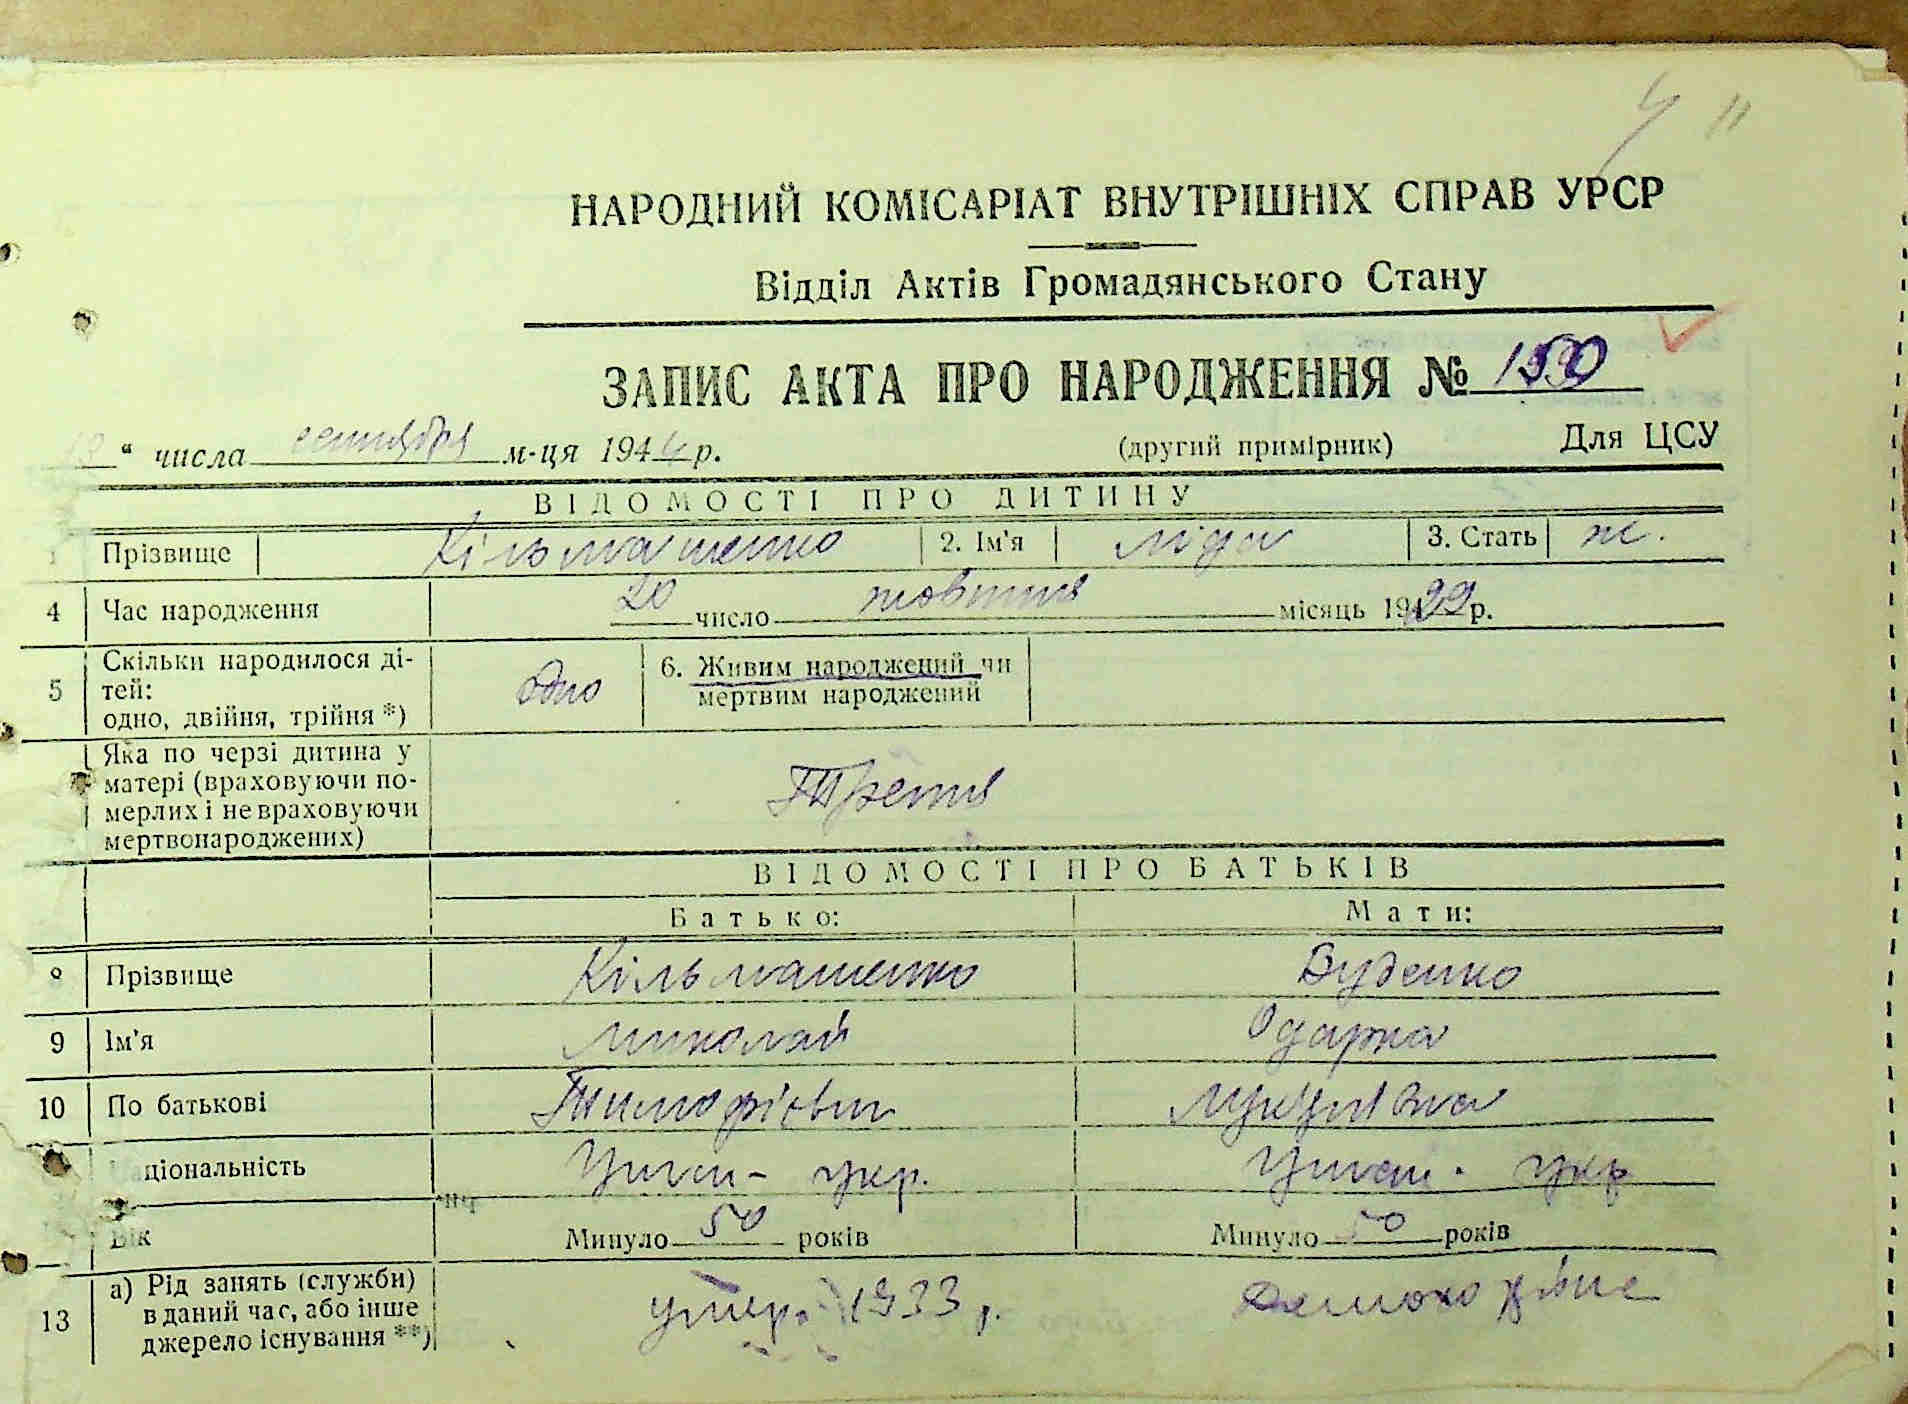 У 11
НАРОДНИЙ КОМІСАРІАТ ВНУТРІШНІХ СПРАВ УРСР
Відділ Актів Громадянського Стану
ЗАПИС АКТА ПРО НАРОДЖЕННЯ №
“ числа сентября м-ця 1944 р. (другий примірник) Для ЦСУ
ВІДОМОСТІ ПРО ДИТИНУ
Прізвище Кільмашенко 2. Ім'я Ліда 3. Стать ж.
4 Час народження 20 число жовтня місяць 19 р.
5 Скільки народилося ді-
тей:
одно, двійня, трійня *) одно 6. Живим народжений чи
мертвим народжений
Яка по черзі дитина у
матері (враховуючи по-
мерлих і не враховуючи
мертвонароджених) Третя
ВІДОМОСТІ ПРО БАТЬКІВ
Батько: Мати:
8 Прізвище Кільмашенко Буденко
9 Ім'я Миколай Одарка
10 По батькові Тимофієвич
Національність укр. укр
Вік Минуло 50 років Минуло 50 років
13 а) Рід занять (служби)
в даний час, або інше
джерело існування **) умер. 1933 р.